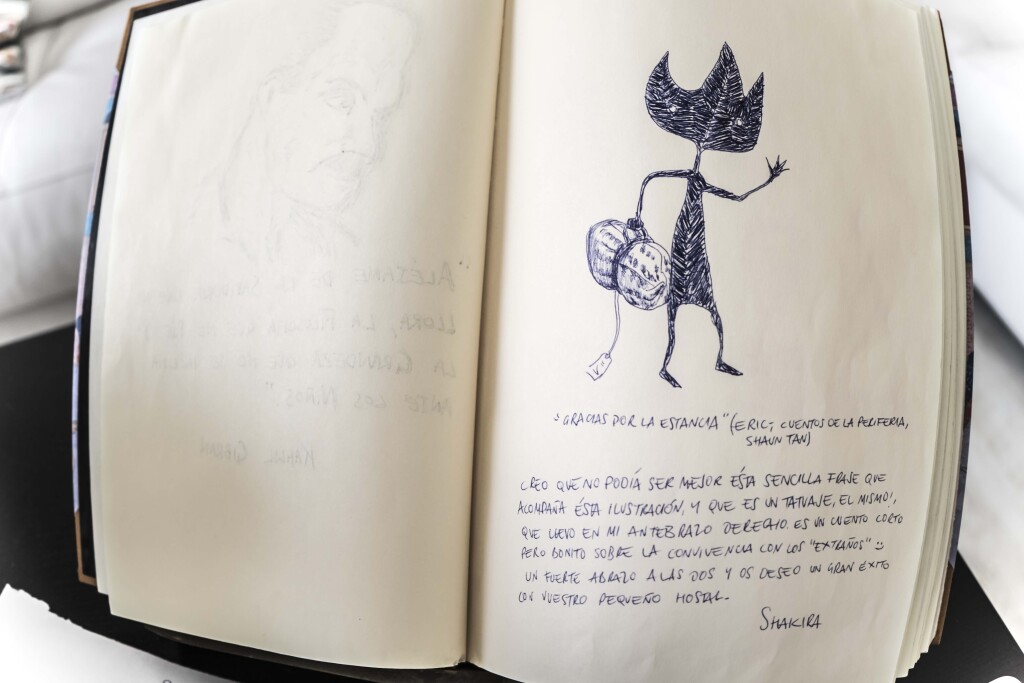 "ALÉJAME DE LA
LLORA, LA FILOSOFÍA QUE NO
LA GRANDEZA QUE NO SE INCLINA
ANTE LOS NIÑOS"
KAHLIL GIBRAN
"GRACIAS POR LA ESTANCIA" (ERIC; CUENTOS DE LA PERIFERIA,
SHAUN TAN)
CREO QUE NO PODÍA SER MEJOR ÉSTA SENCILLA FRASE QUE
ACOMPAÑA ÉSTA ILUSTRACIÓN, Y QUE ES UN TATUAJE, EL MISMO!,
QUE LLEVO EN MI ANTEBRAZO DERECHO. ES UN CUENTO CORTO
PERO BONITO SOBRE LA CONVIVENCIA CON LOS "EXTRAÑOS" :)
UN FUERTE ABRAZO A LAS DOS Y OS DESEO UN GRAN ÉXITO
CON VUESTRO PEQUEÑO HOSTAL.
SHAKIRA